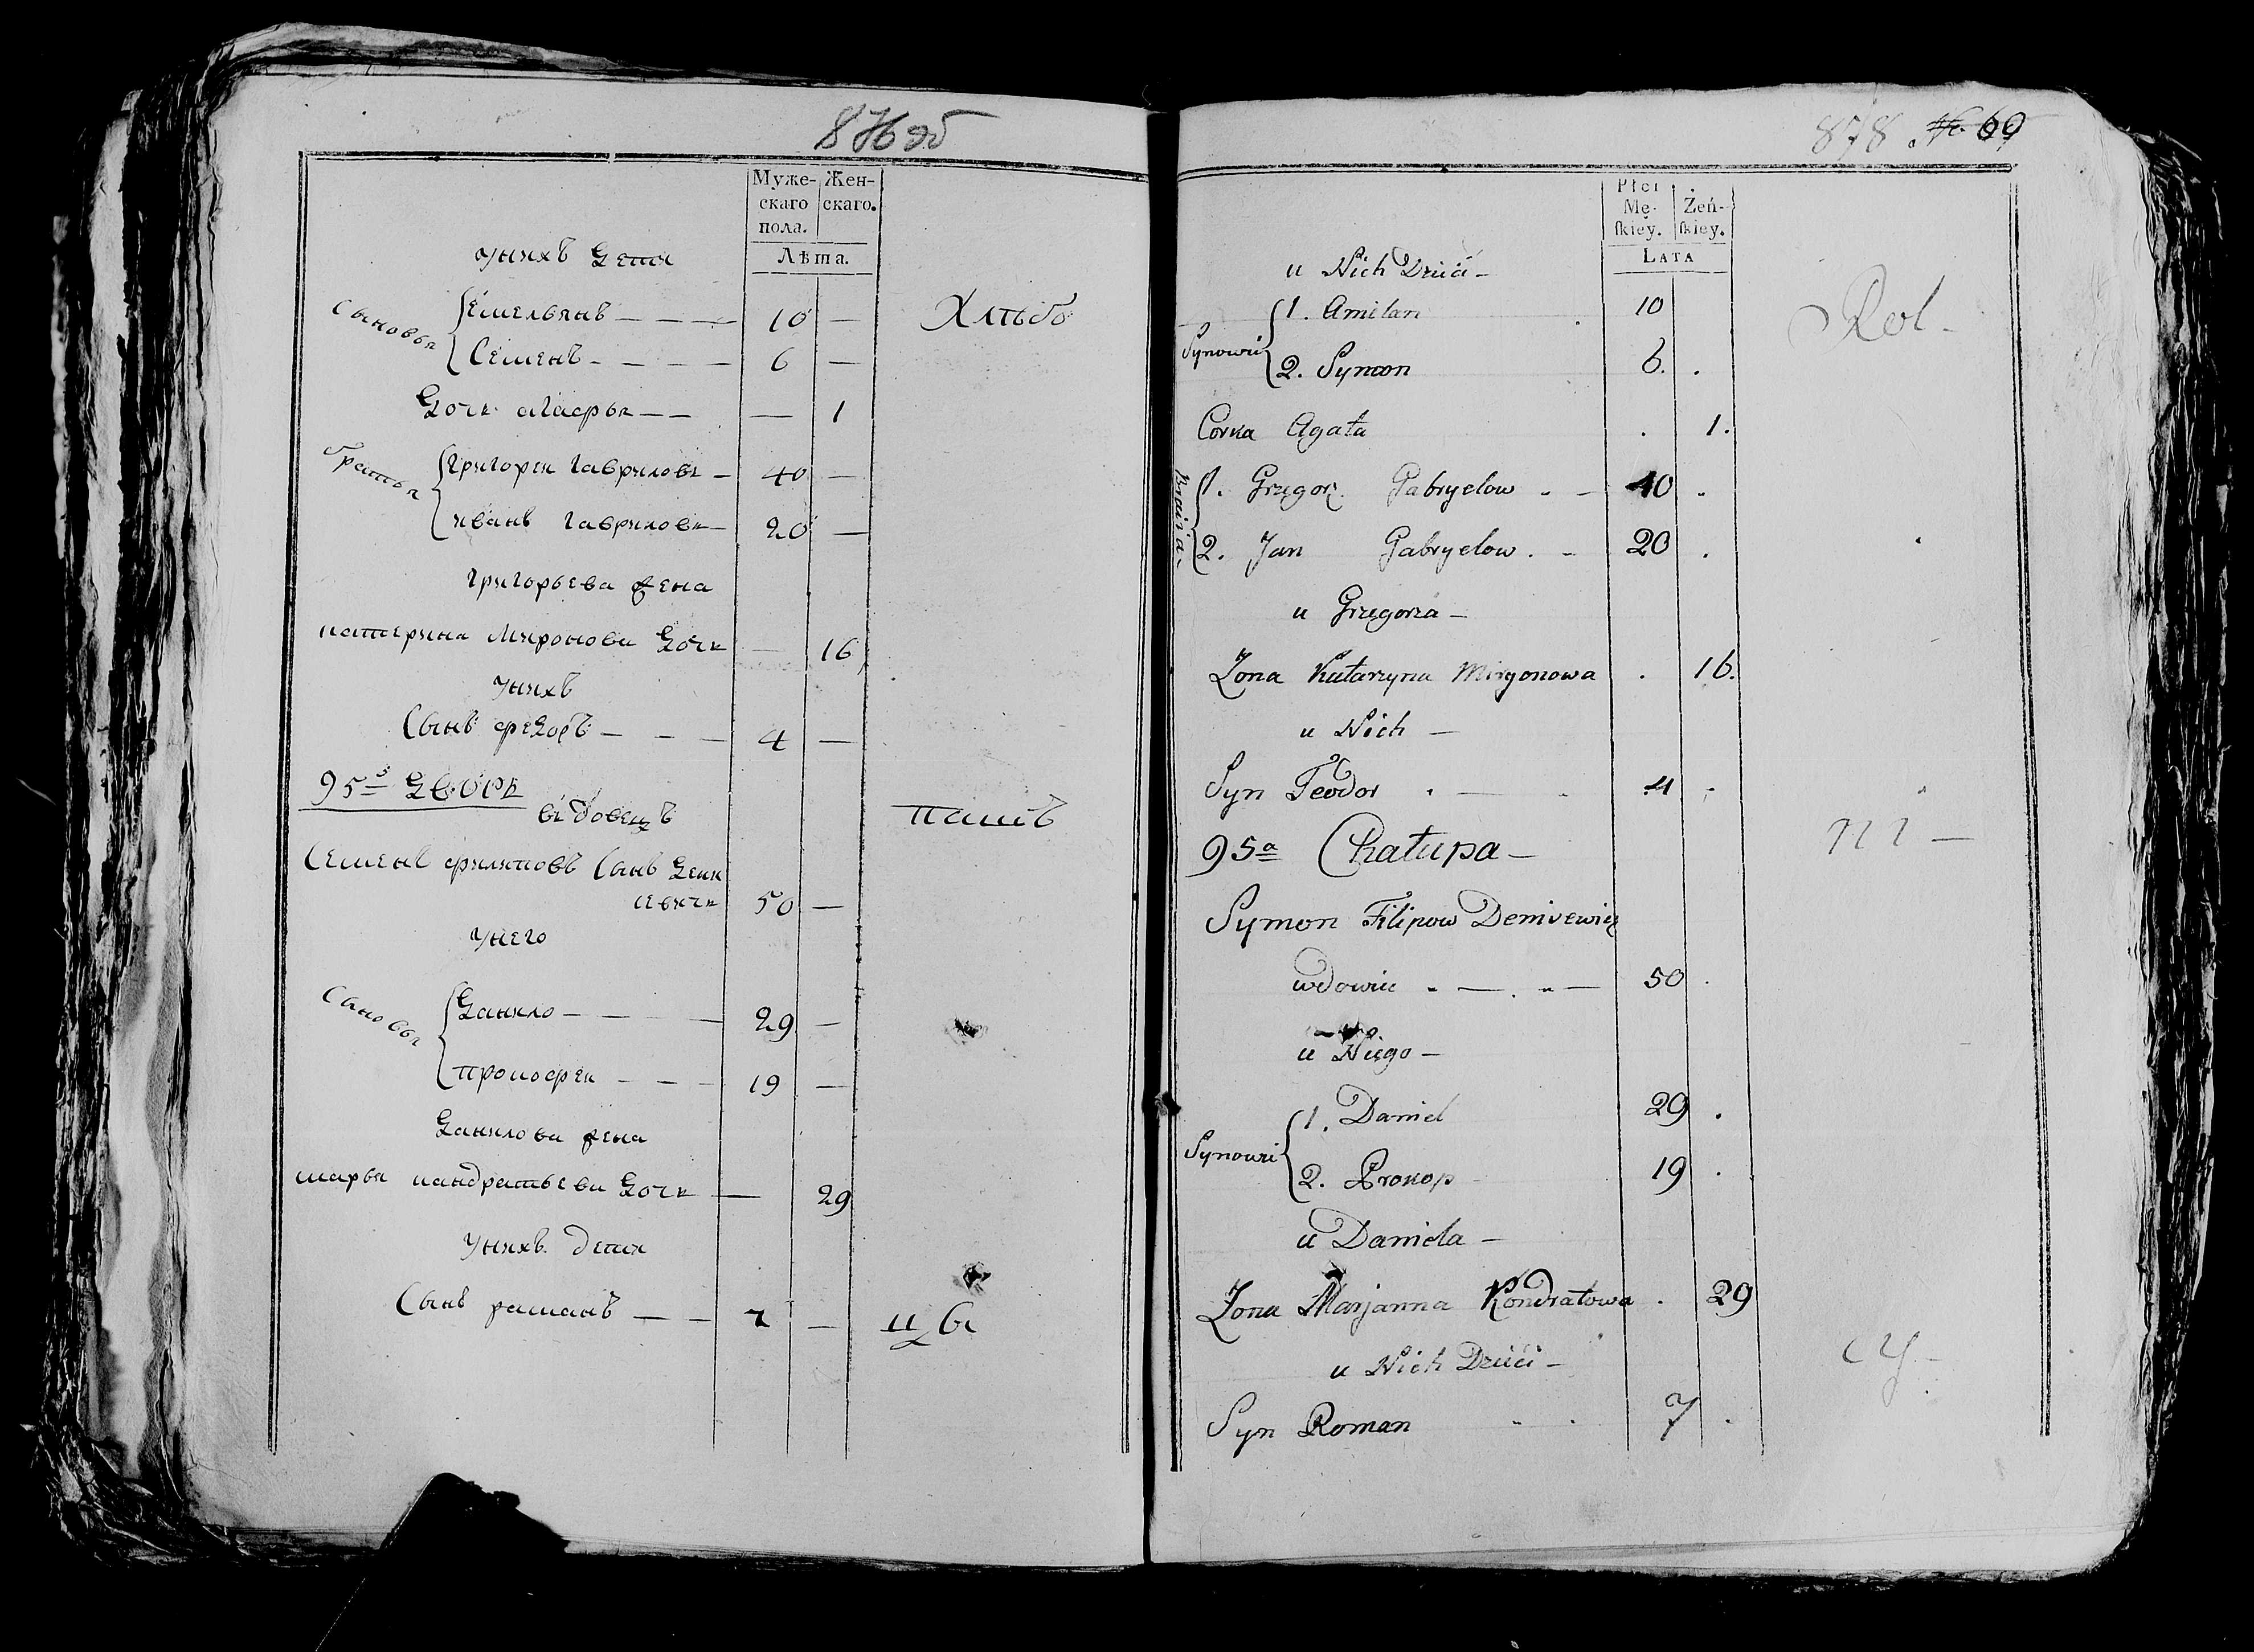 876 об
Муже- Жен-
скаго скаго.
пола.
Лѣта.
унихъ дети
Сыновья
Емельянъ — — — 10 — Хлѣбо
Семенъ — — — — 6 —
дочь агафья — — — 1
братья
григореи гавриловъ — 40 —
иванъ гавриловъ — 20 —
григорьева жена
катерина миронова дочь — 16
унихъ
Сынъ федоръ — — — 4 —
95й дворъ
вдовецъ пашъ
Семенъ филиповъ Сынъ дени
севичъ 50 —
унего
Сыновья
данило — — — — 29 —
прокофеи — — — 19 —
данилова жена
марья кандратьева дочь — 29
унихъ дети
Сынъ раманъ — — 7 — цы
878 № 69
Płci
Mę- Żeń-
skiey. skiey.
LATA
u Nich Dzieci —
Synowie
1. Amilan 10 Rol-
2. Symon 6. .
Corka Agata . 1.
Bracia
1. Grzegorz Gabryelow . — 40 .
2. Jan Gabryelow . — 20 .
u Grzegorza —
Żona Katarzyna Miryonowa . 16.
u Nich —
Syn Teodor . — . 4 .
95a Chałupa — ni —
Symon Filipow Denisewicz
wdowiec . — . — 50 .
u Niego —
Synowie
1. Daniel 29 .
2. Prokop 19 .
u Daniela —
Żona Marjanna Kondratowa . 29
u Nich Dzieci — cy —
Syn Roman . . 7 .